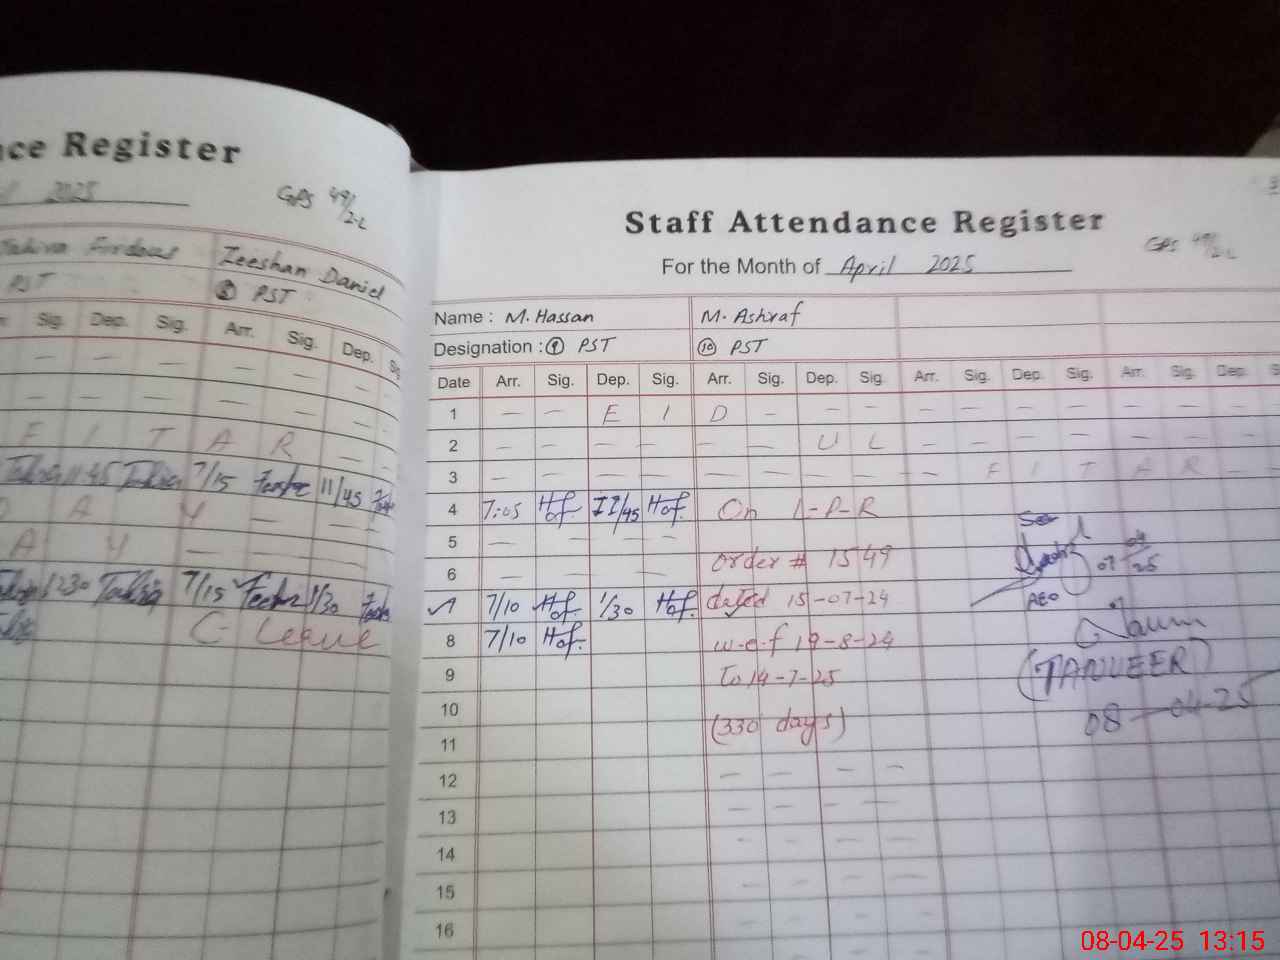 ce Register
2025
GPS 49/2-L
Firdous
Zeeshan Daniel
PST
⑧ PST
Sig. Dep. Sig. Arr. Sig. Dep.
F I T A R
11:45 7/15 11/45
D A Y
A Y
1230 7/15 1/30
C- Leave
Staff Attendance Register
GPS 49/2-L
For the Month of April 2025
Name : M. Hassan M. Ashraf
Designation : ⑨ PST ⑩ PST
Date Arr. Sig. Dep. Sig. Arr. Sig. Dep. Sig. Arr. Sig. Dep. Sig. Arr. Sig. Dep. S
1 — — E I D — — —
2 — — — — — — U L — — — —
3 — — — — — — — — — F I T A R — —
4 7:05 Hof. 11/45 Hof. On L-P-R
5 — — — —
order # 1549
07 04/25
6 — — — —
AEO
7 7/10 Hof. 1/30 Hof. dated 15-07-24
8 7/10 Hof. w-e-f 19-8-24
(TANVEER)
9 To 14-7-25
08-04-25
10
(330 days)
11
12 — — — —
13 — — — —
14 — — — —
15 — — — —
16
08-04-25 13:15